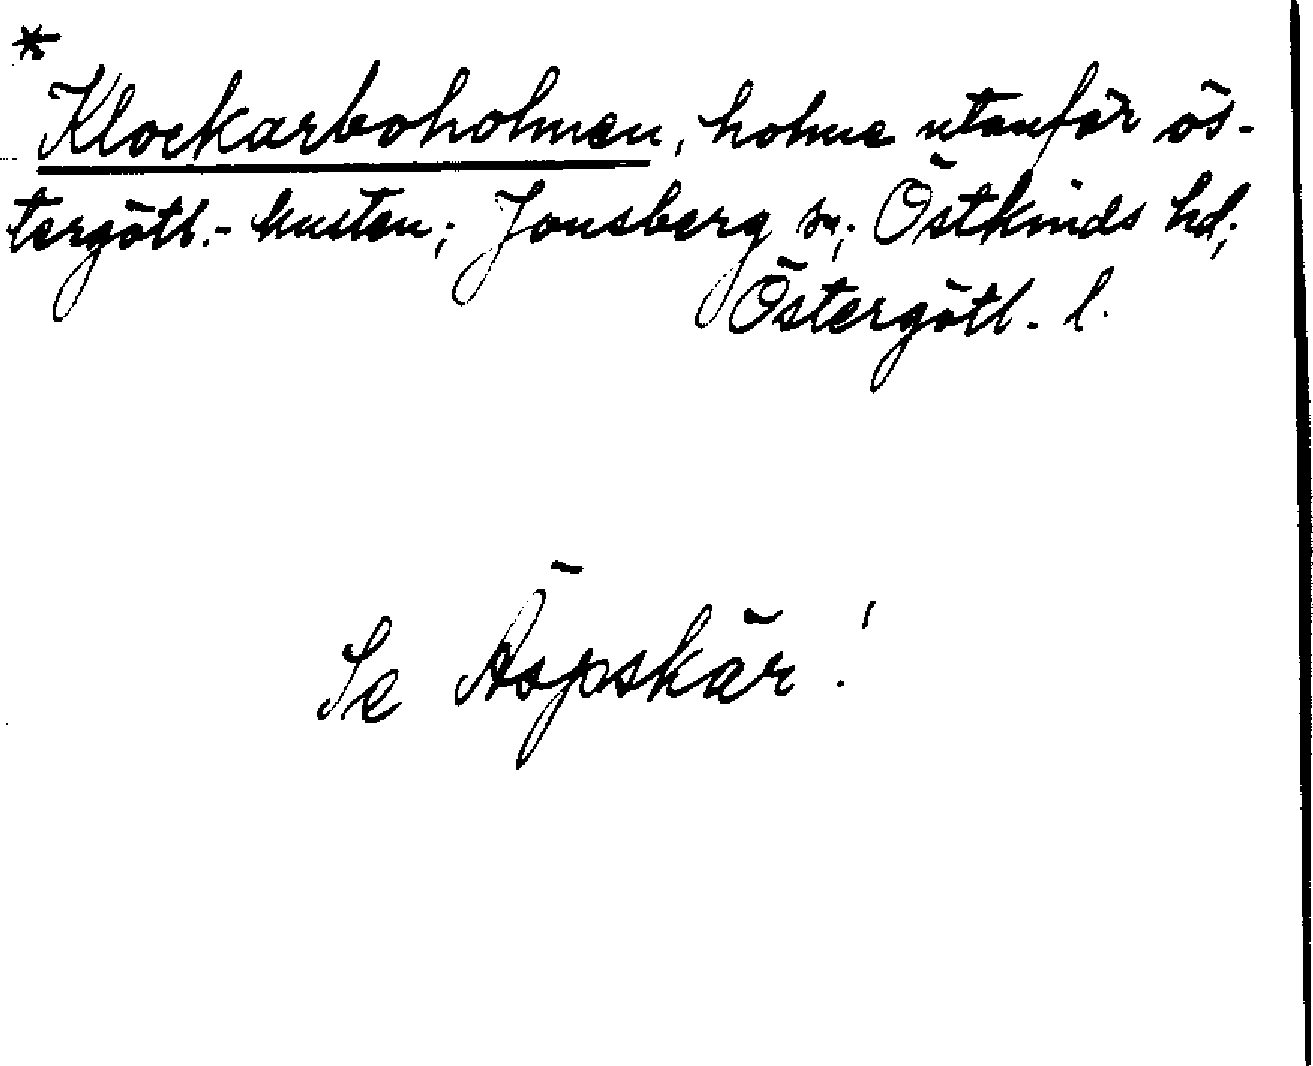 *
Klockarboholmen, holme utanför ös-
tergötl.-kusten; Jonsberg sn; Östkinds hd;
Östergötl. l.
Se Äspskär!